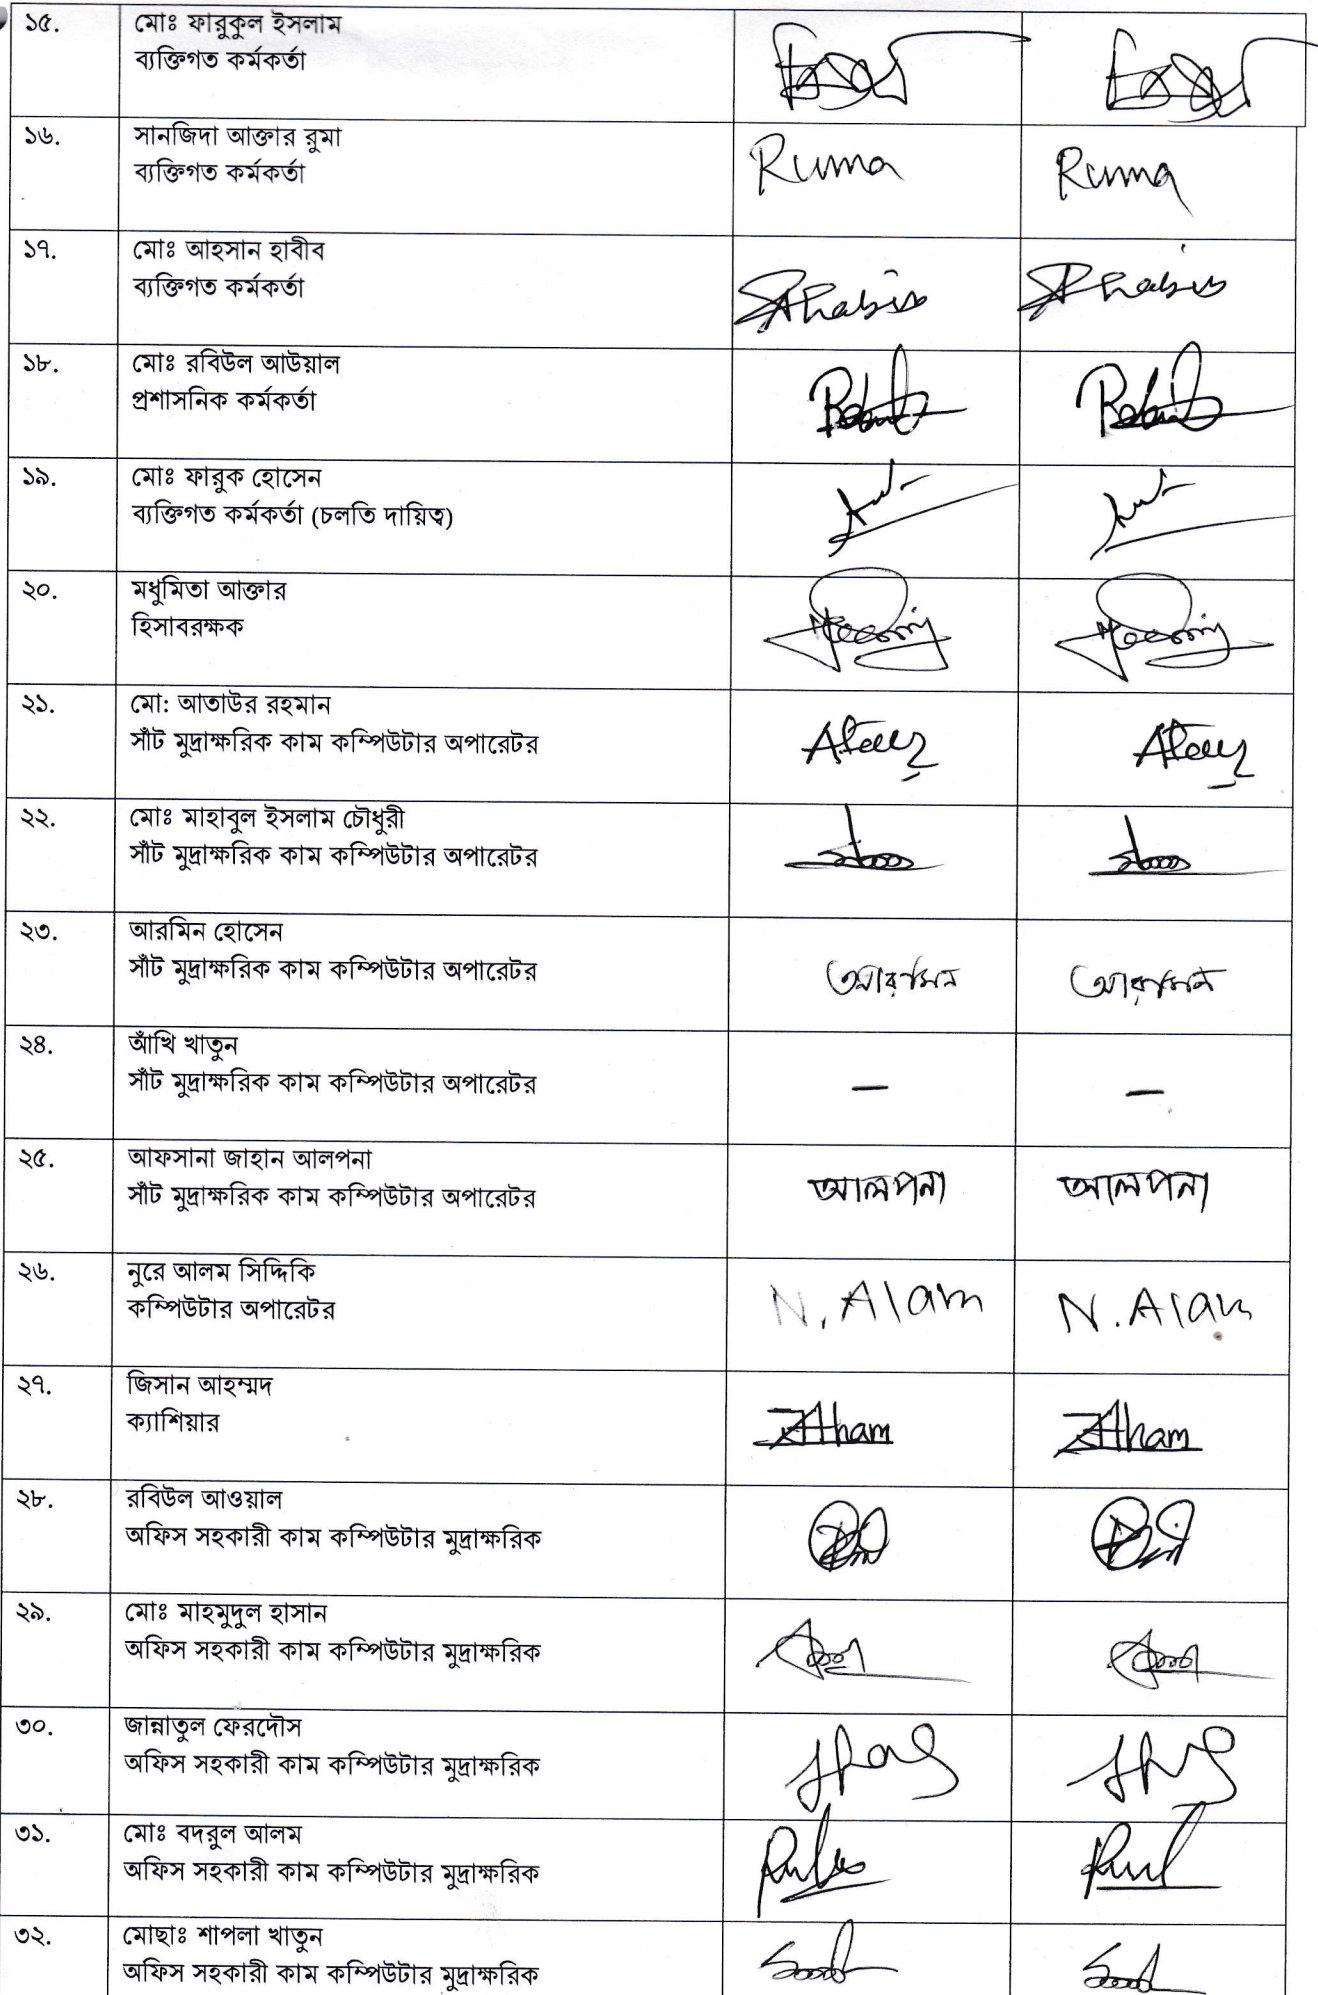 ১৫. মোঃ ফারুকুল ইসলাম
ব্যক্তিগত কর্মকর্তা
১৬. সানজিদা আক্তার রুমা
ব্যক্তিগত কর্মকর্তা Ruma Ruma
১৭. মোঃ আহসান হাবীব
ব্যক্তিগত কর্মকর্তা
১৮. মোঃ রবিউল আউয়াল
প্রশাসনিক কর্মকর্তা
১৯. মোঃ ফারুক হোসেন
ব্যক্তিগত কর্মকর্তা (চলতি দায়িত্ব)
২০. মধুমিতা আক্তার
হিসাবরক্ষক
২১. মো: আতাউর রহমান
সাঁট মুদ্রাক্ষরিক কাম কম্পিউটার অপারেটর
২২. মোঃ মাহাবুল ইসলাম চৌধুরী
সাঁট মুদ্রাক্ষরিক কাম কম্পিউটার অপারেটর
২৩. আরমিন হোসেন
সাঁট মুদ্রাক্ষরিক কাম কম্পিউটার অপারেটর আরমিন আরমিন
২৪. আঁখি খাতুন
সাঁট মুদ্রাক্ষরিক কাম কম্পিউটার অপারেটর – –
২৫. আফসানা জাহান আলপনা
সাঁট মুদ্রাক্ষরিক কাম কম্পিউটার অপারেটর আলপনা আলপনা
২৬. নুরে আলম সিদ্দিকি
কম্পিউটার অপারেটর N. Alam N. Alam
২৭. জিসান আহম্মদ
ক্যাশিয়ার
২৮. রবিউল আওয়াল
অফিস সহকারী কাম কম্পিউটার মুদ্রাক্ষরিক
২৯. মোঃ মাহমুদুল হাসান
অফিস সহকারী কাম কম্পিউটার মুদ্রাক্ষরিক
৩০. জান্নাতুল ফেরদৌস
অফিস সহকারী কাম কম্পিউটার মুদ্রাক্ষরিক
৩১. মোঃ বদরুল আলম
অফিস সহকারী কাম কম্পিউটার মুদ্রাক্ষরিক
৩২. মোছাঃ শাপলা খাতুন
অফিস সহকারী কাম কম্পিউটার মুদ্রাক্ষরিক